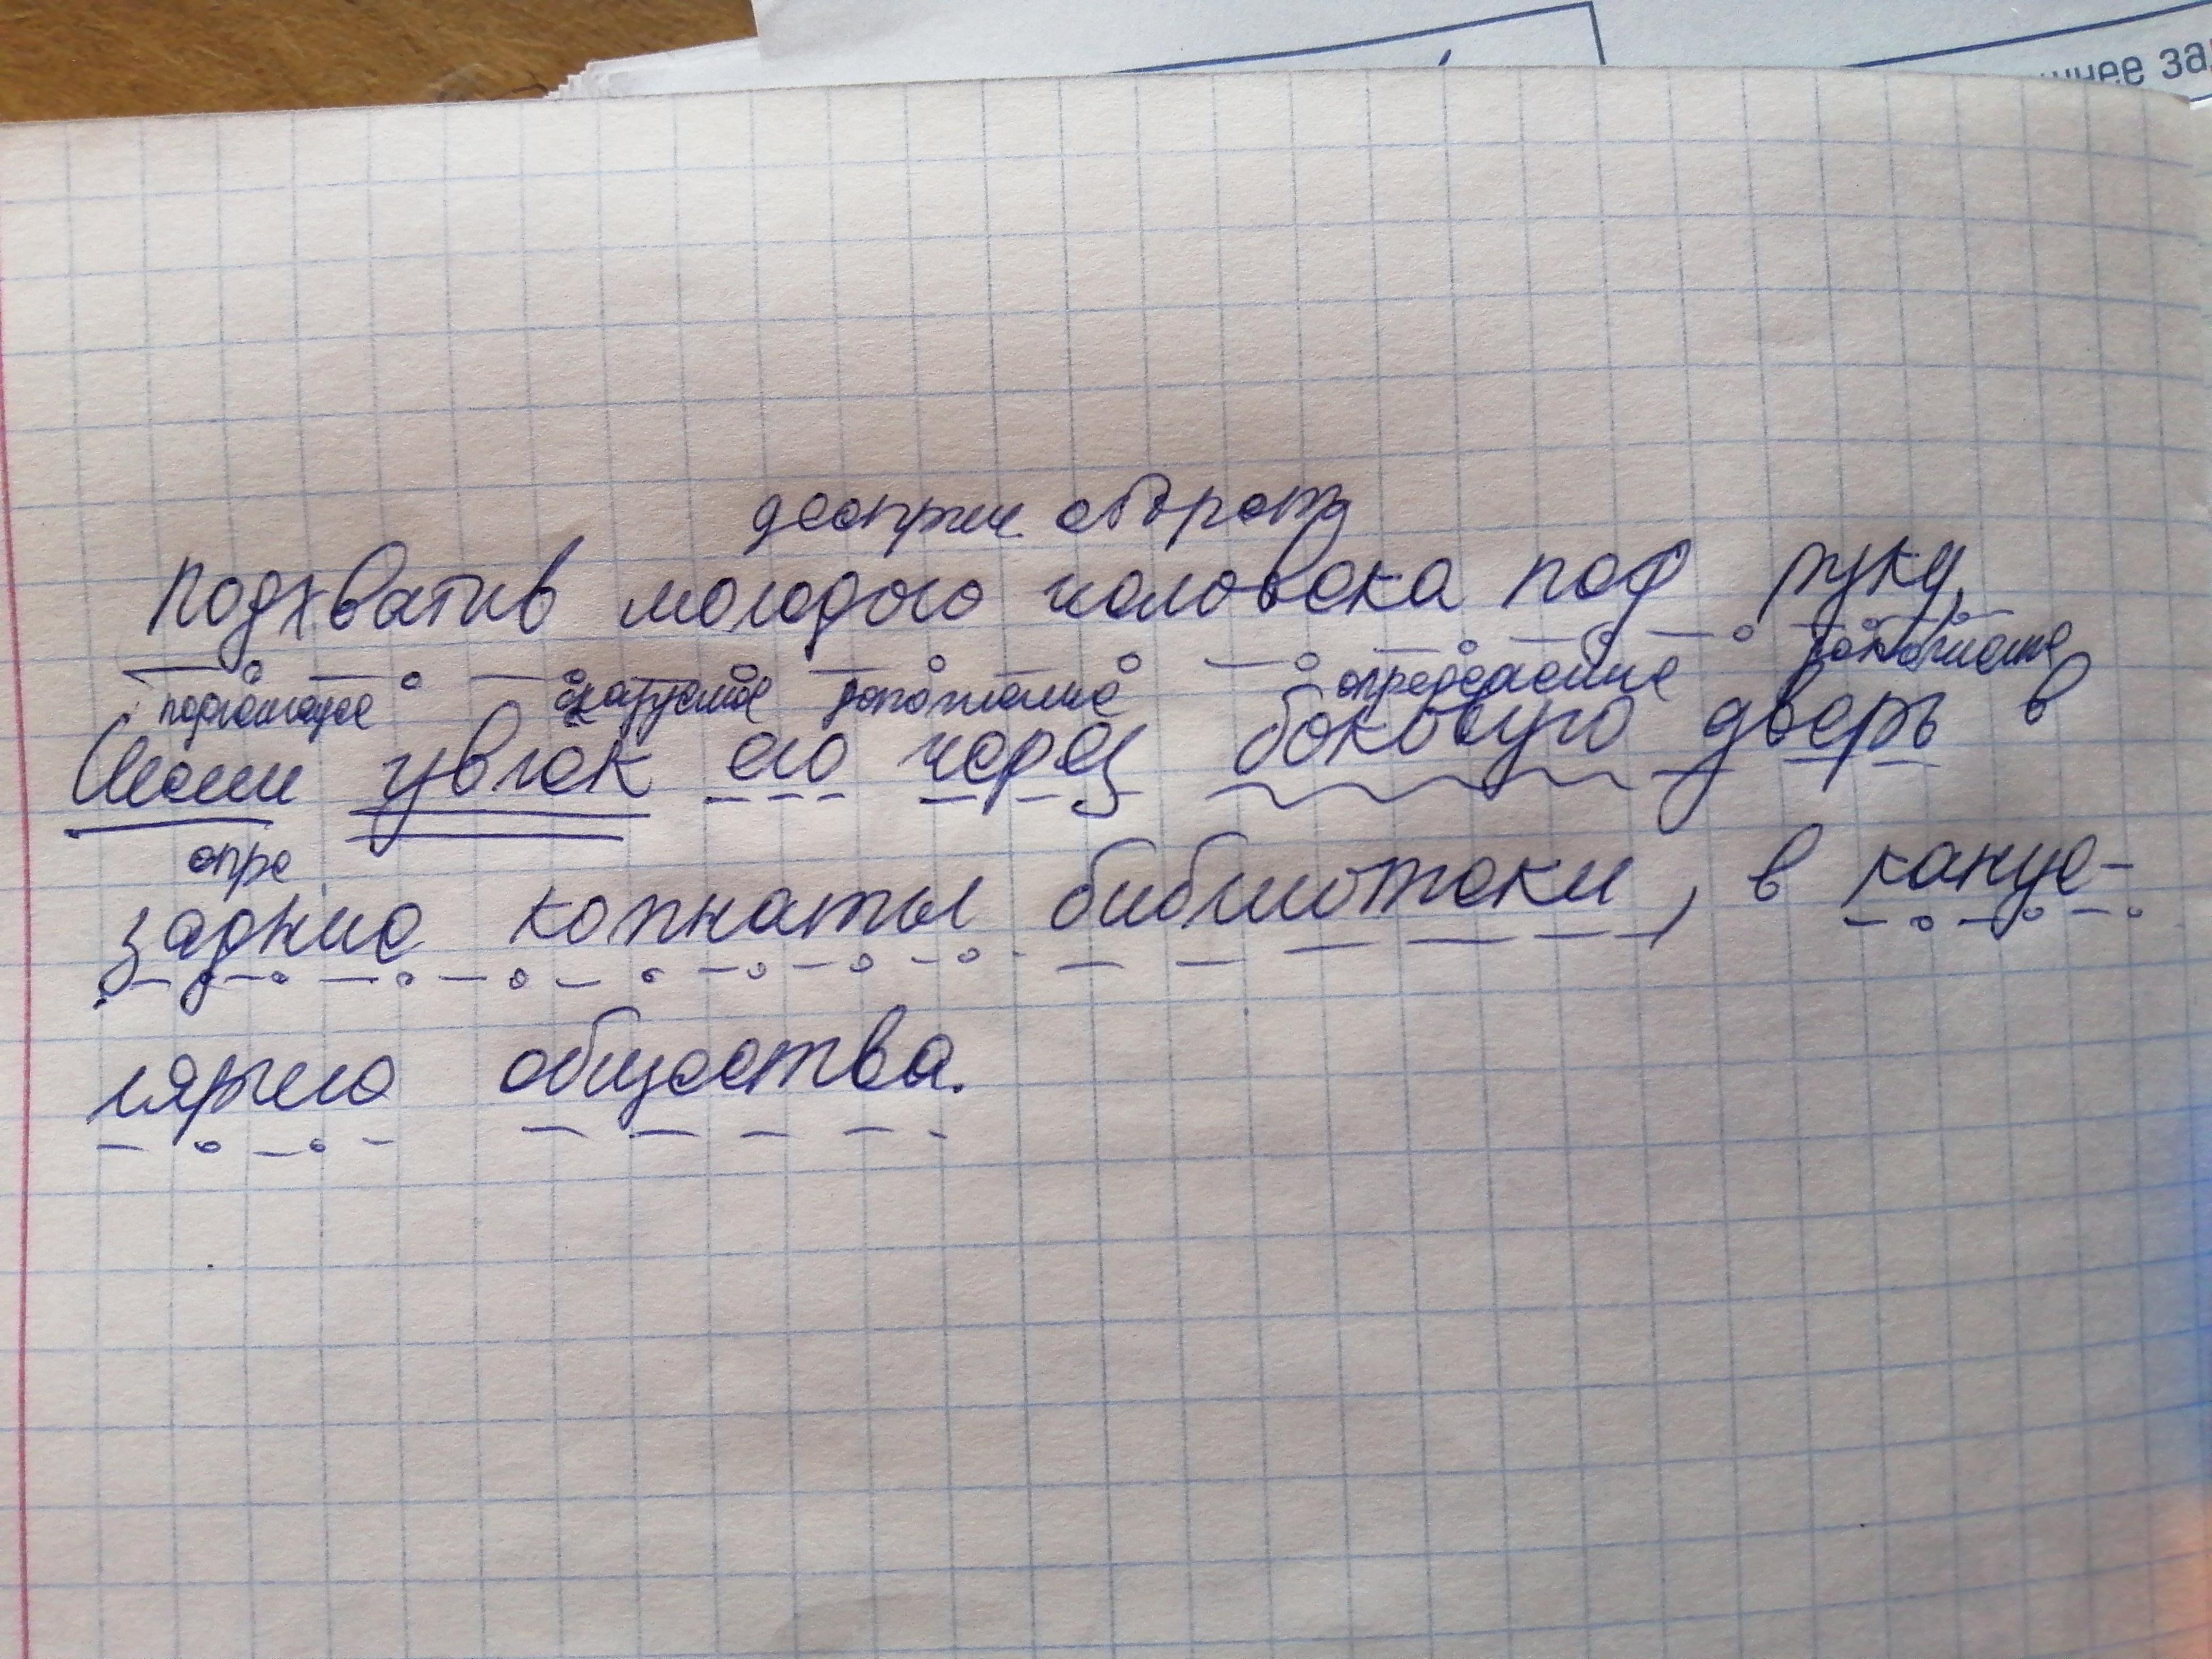 нее за
деоприч. оборот
Подхватив молодого человека под руку,
подлежащее сказуемое дополнение определение дополнение
увлёк его через боковую дверь в
опре
задние комнаты библиотеки, в канце-
лярию общества.